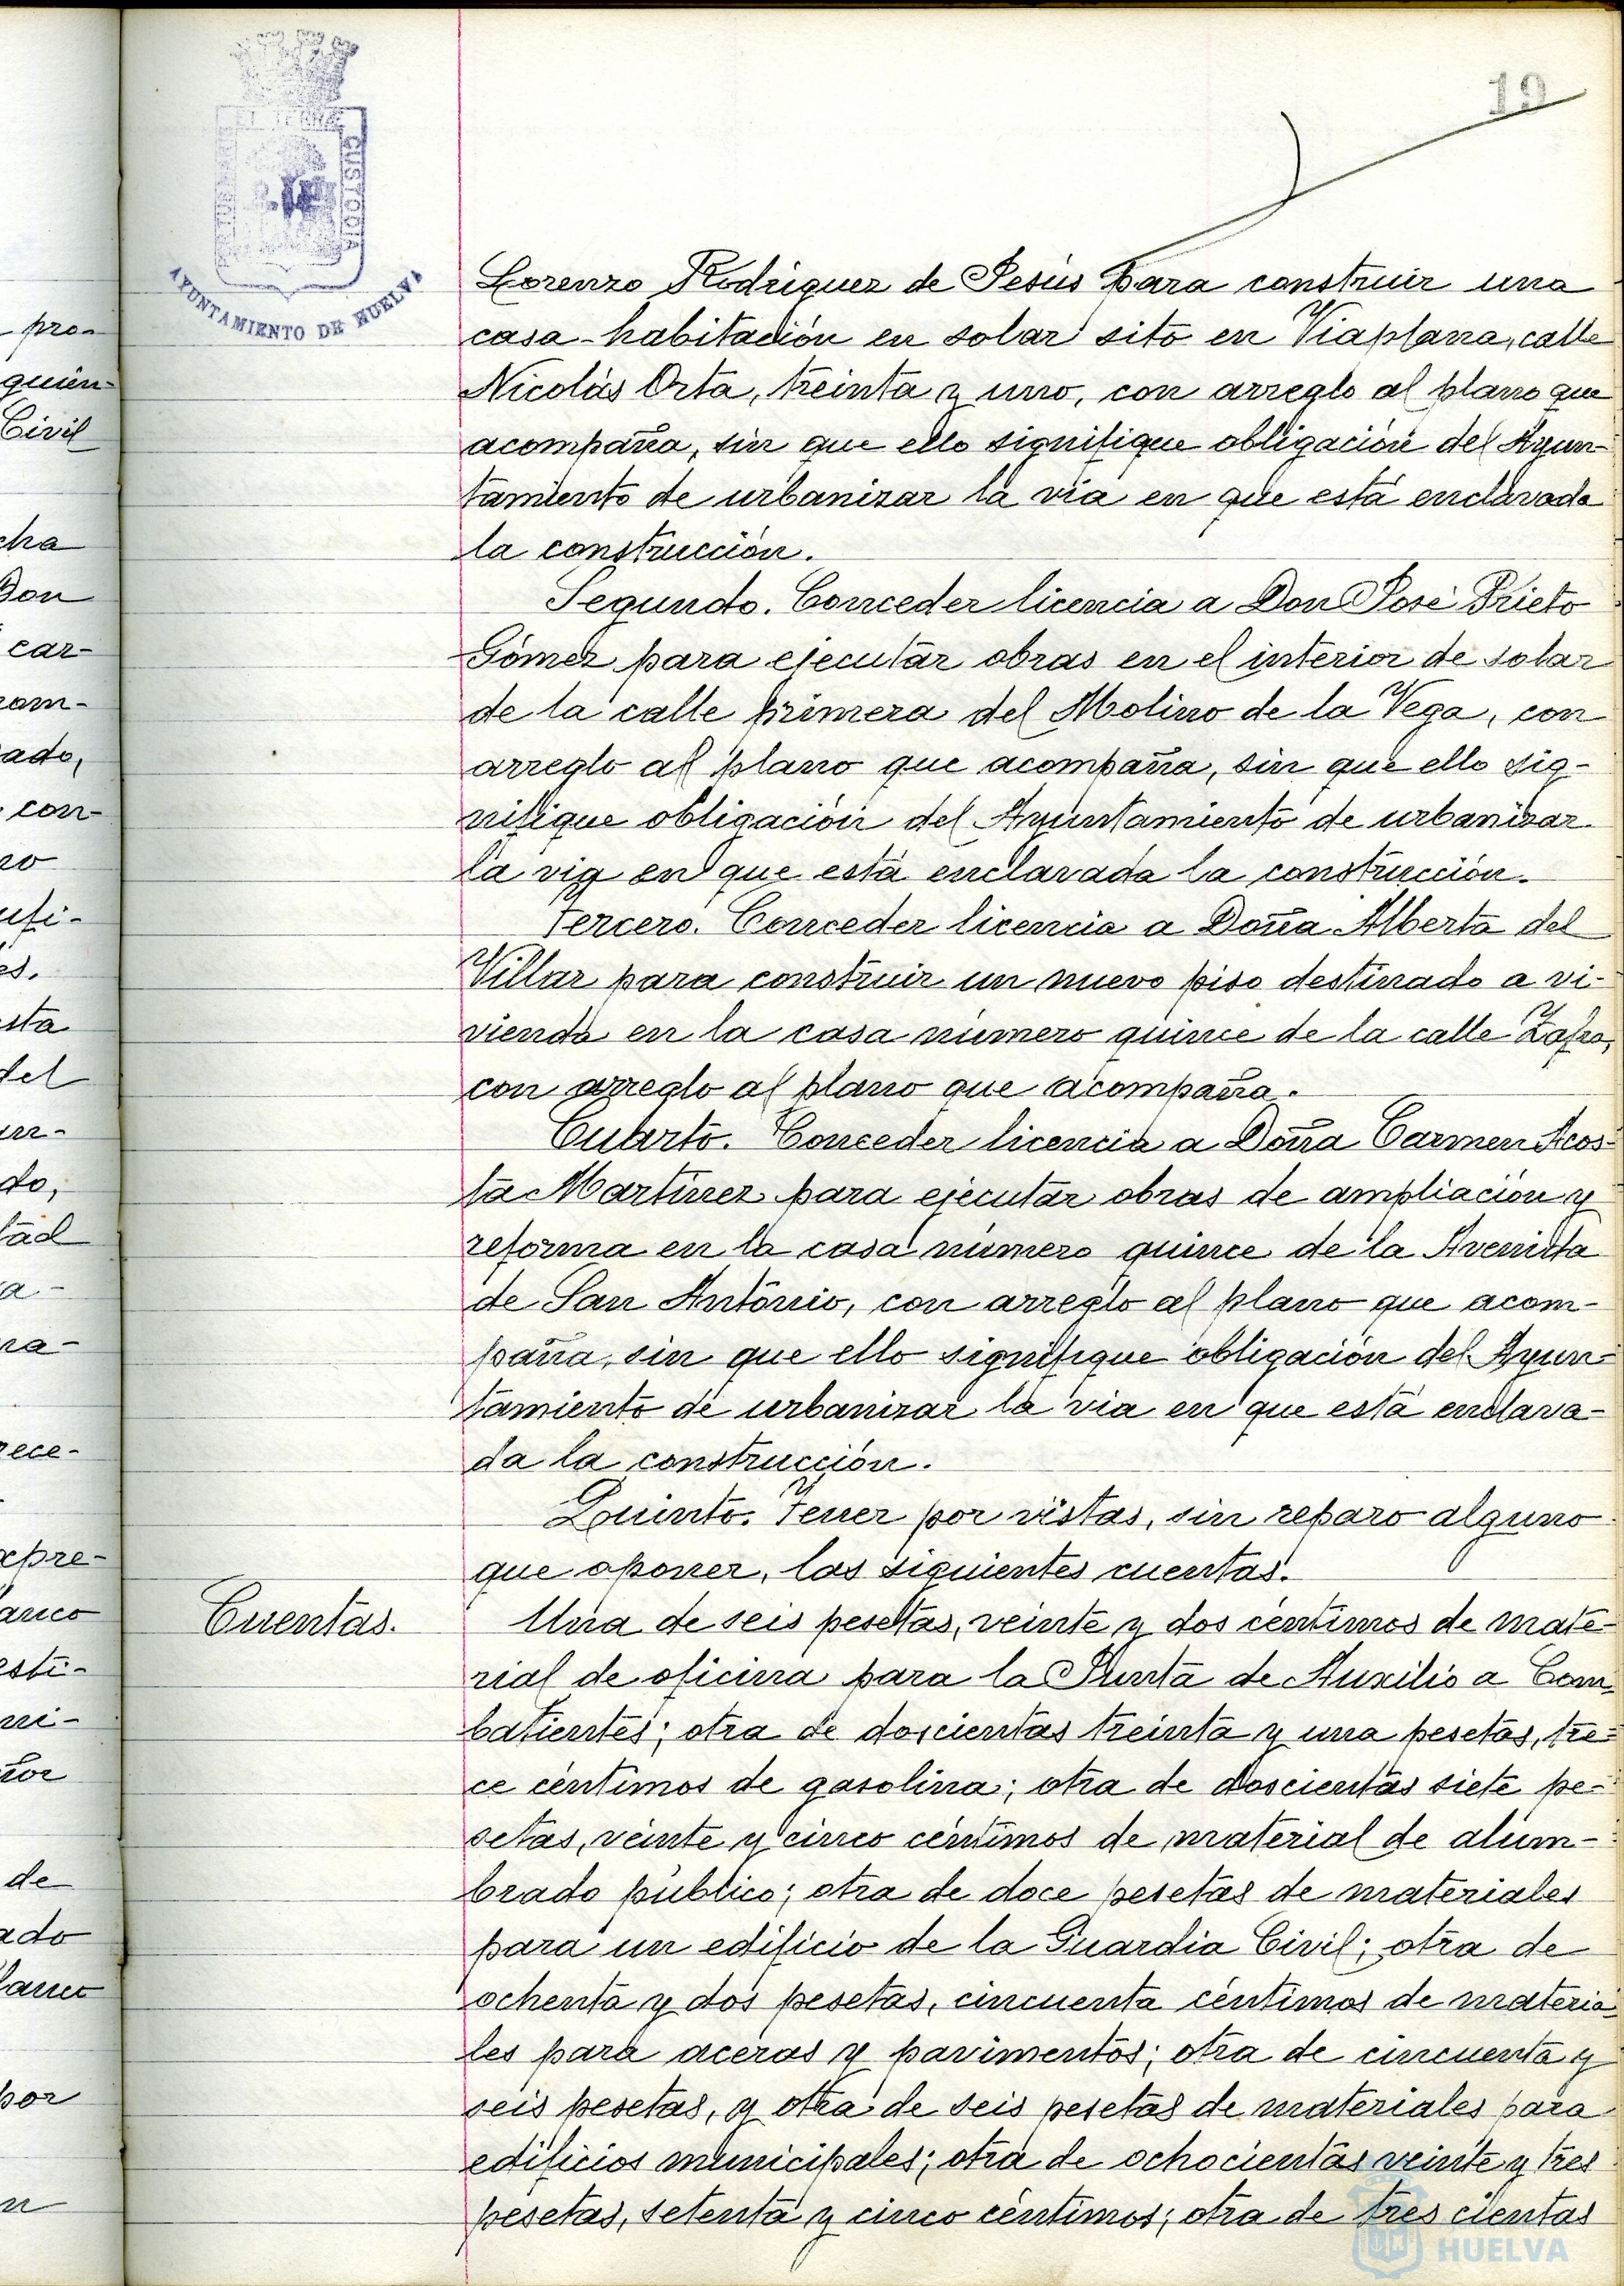 19
PORTUS MARIS
ET TERRAE
CUSTODIA
AYUNTAMIENTO DE HUELVA
Lorenzo Rodriguez de Jesús para construir una
casa-habitación en solar sito en Viaplana, calle
Nicolás Orta, treinta y uno, con arreglo al plano que
acompaña, sin que ello signifique obligación del Ayun-
tamiento de urbanizar la vía en que está enclavada
la construcción.
Segundo. Conceder licencia a Don José Prieto
Gómez para ejecutar obras en el interior de solar
de la calle primera del Molino de la Vega, con
arreglo al plano que acompaña, sin que ello sig-
nifique obligación del Ayuntamiento de urbanizar
la vía en que está enclavada la construcción.
Tercero. Conceder licencia a Doña Alberta del
Villar para construir un nuevo piso destinado a vi-
vienda en la casa número quince de la calle Zafra,
con arreglo al plano que acompaña.
Cuarto. Conceder licencia a Doña Carmen Acos-
ta Martínez para ejecutar obras de ampliación y
reforma en la casa número quince de la Avenida
de San Antonio, con arreglo al plano que acom-
paña, sin que ello signifique obligación del Ayun-
tamiento de urbanizar la vía en que está enclava-
da la construcción.
Quinto. Tener por vistas, sin reparo alguno
que oponer, las siguientes cuentas.
Cuentas.
Una de seis pesetas, veinte y dos céntimos de mate-
rial de oficina para la Junta de Auxilio a Com-
batientes; otra de doscientas treinta y una pesetas, tre-
ce céntimos de gasolina; otra de doscientas siete pe-
setas, veinte y cinco céntimos de material de alum-
brado público; otra de doce pesetas de materiales
para un edificio de la Guardia Civil; otra de
ochenta y dos pesetas, cincuenta céntimos de materia-
les para aceras y pavimentos; otra de cincuenta y
seis pesetas, y otra de seis pesetas de materiales para
edificios municipales; otra de ochocientas veinte y tres
pesetas, setenta y cinco céntimos; otra de tres cientas
HUELVA
pro-
quien-
Civil
cha
Don
car-
ado,
con-
sta
del
do,
rece-
de
ado
por